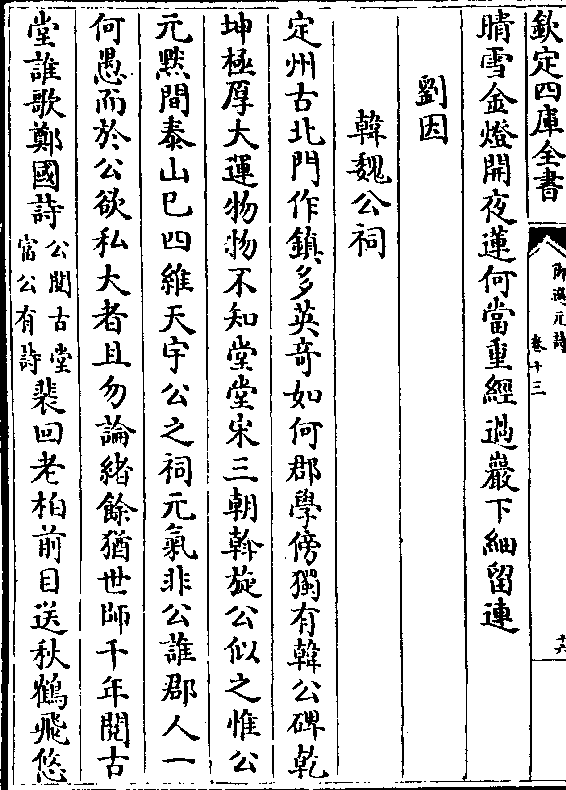 欽定四庫全書
御選元詩
卷十三
十六
晴雪金燈開夜蓮何當重經過巖下細留連
劉因
韓魏公祠
定州古北門作鎮多英奇如何郡學傍獨有韓公碑乾
坤極厚大運物物不知堂堂宋三朝斡旋公似之惟公
元黙間泰山已四維天宇公之祠元氣非公誰郡人一
何愚而於公欲私大者且勿論緒餘猶世師千年閱古
堂誰歌鄭國詩公閱古堂富公有詩裴回老柏前目送秋鶴飛悠